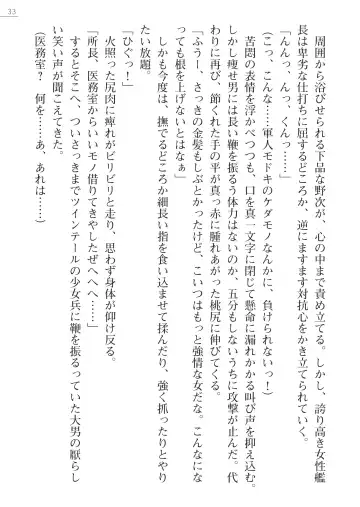 33
周囲から浴びせられる下品な野次が、心の中まで責め立てる。しかし、誇り高き女性艦
長は卑劣な仕打ちに屈するどころか、逆にますます対抗心をかき立てられていく。
「んんっ、んっ、くんっ……」
(こっ、こんな……軍人モドキのケダモノなんかに、負けられないっ!)
苦悶の表情を浮かべつつも、口を真一文字に閉じて懸命に漏れかかる叫び声を抑え込む。
しかし痩せ男には長い鞭を振るう体力はないらしく、五分もしないうちに攻撃が止んだ。代
わりに再び、節くれた手の平が真っ赤に腫れあがった桃尻に伸びてくる。
「ふうー、さっきの金髪もしぶとかったけど、こいつはもっと強情な女だな。こんなにな
っても根を上げないとはなぁ」
しかも今度は、撫でるどころか細長い指を食い込ませて揉んだり、強く抓ったりとやり
たい放題。
「ひぐっ!」
火照った尻肉に痺れがビリビリと走り、思わず身体が仰け反る。
「所長、医務室からいいモノ借りてきやしたぜへへへ……」
するとそこへ、ついさっきまでツインテールの少女兵に鞭を振るっていた大男の厭らし
い笑い声が聞こえてきた。
(医務室? 何を……あ、あれは……)